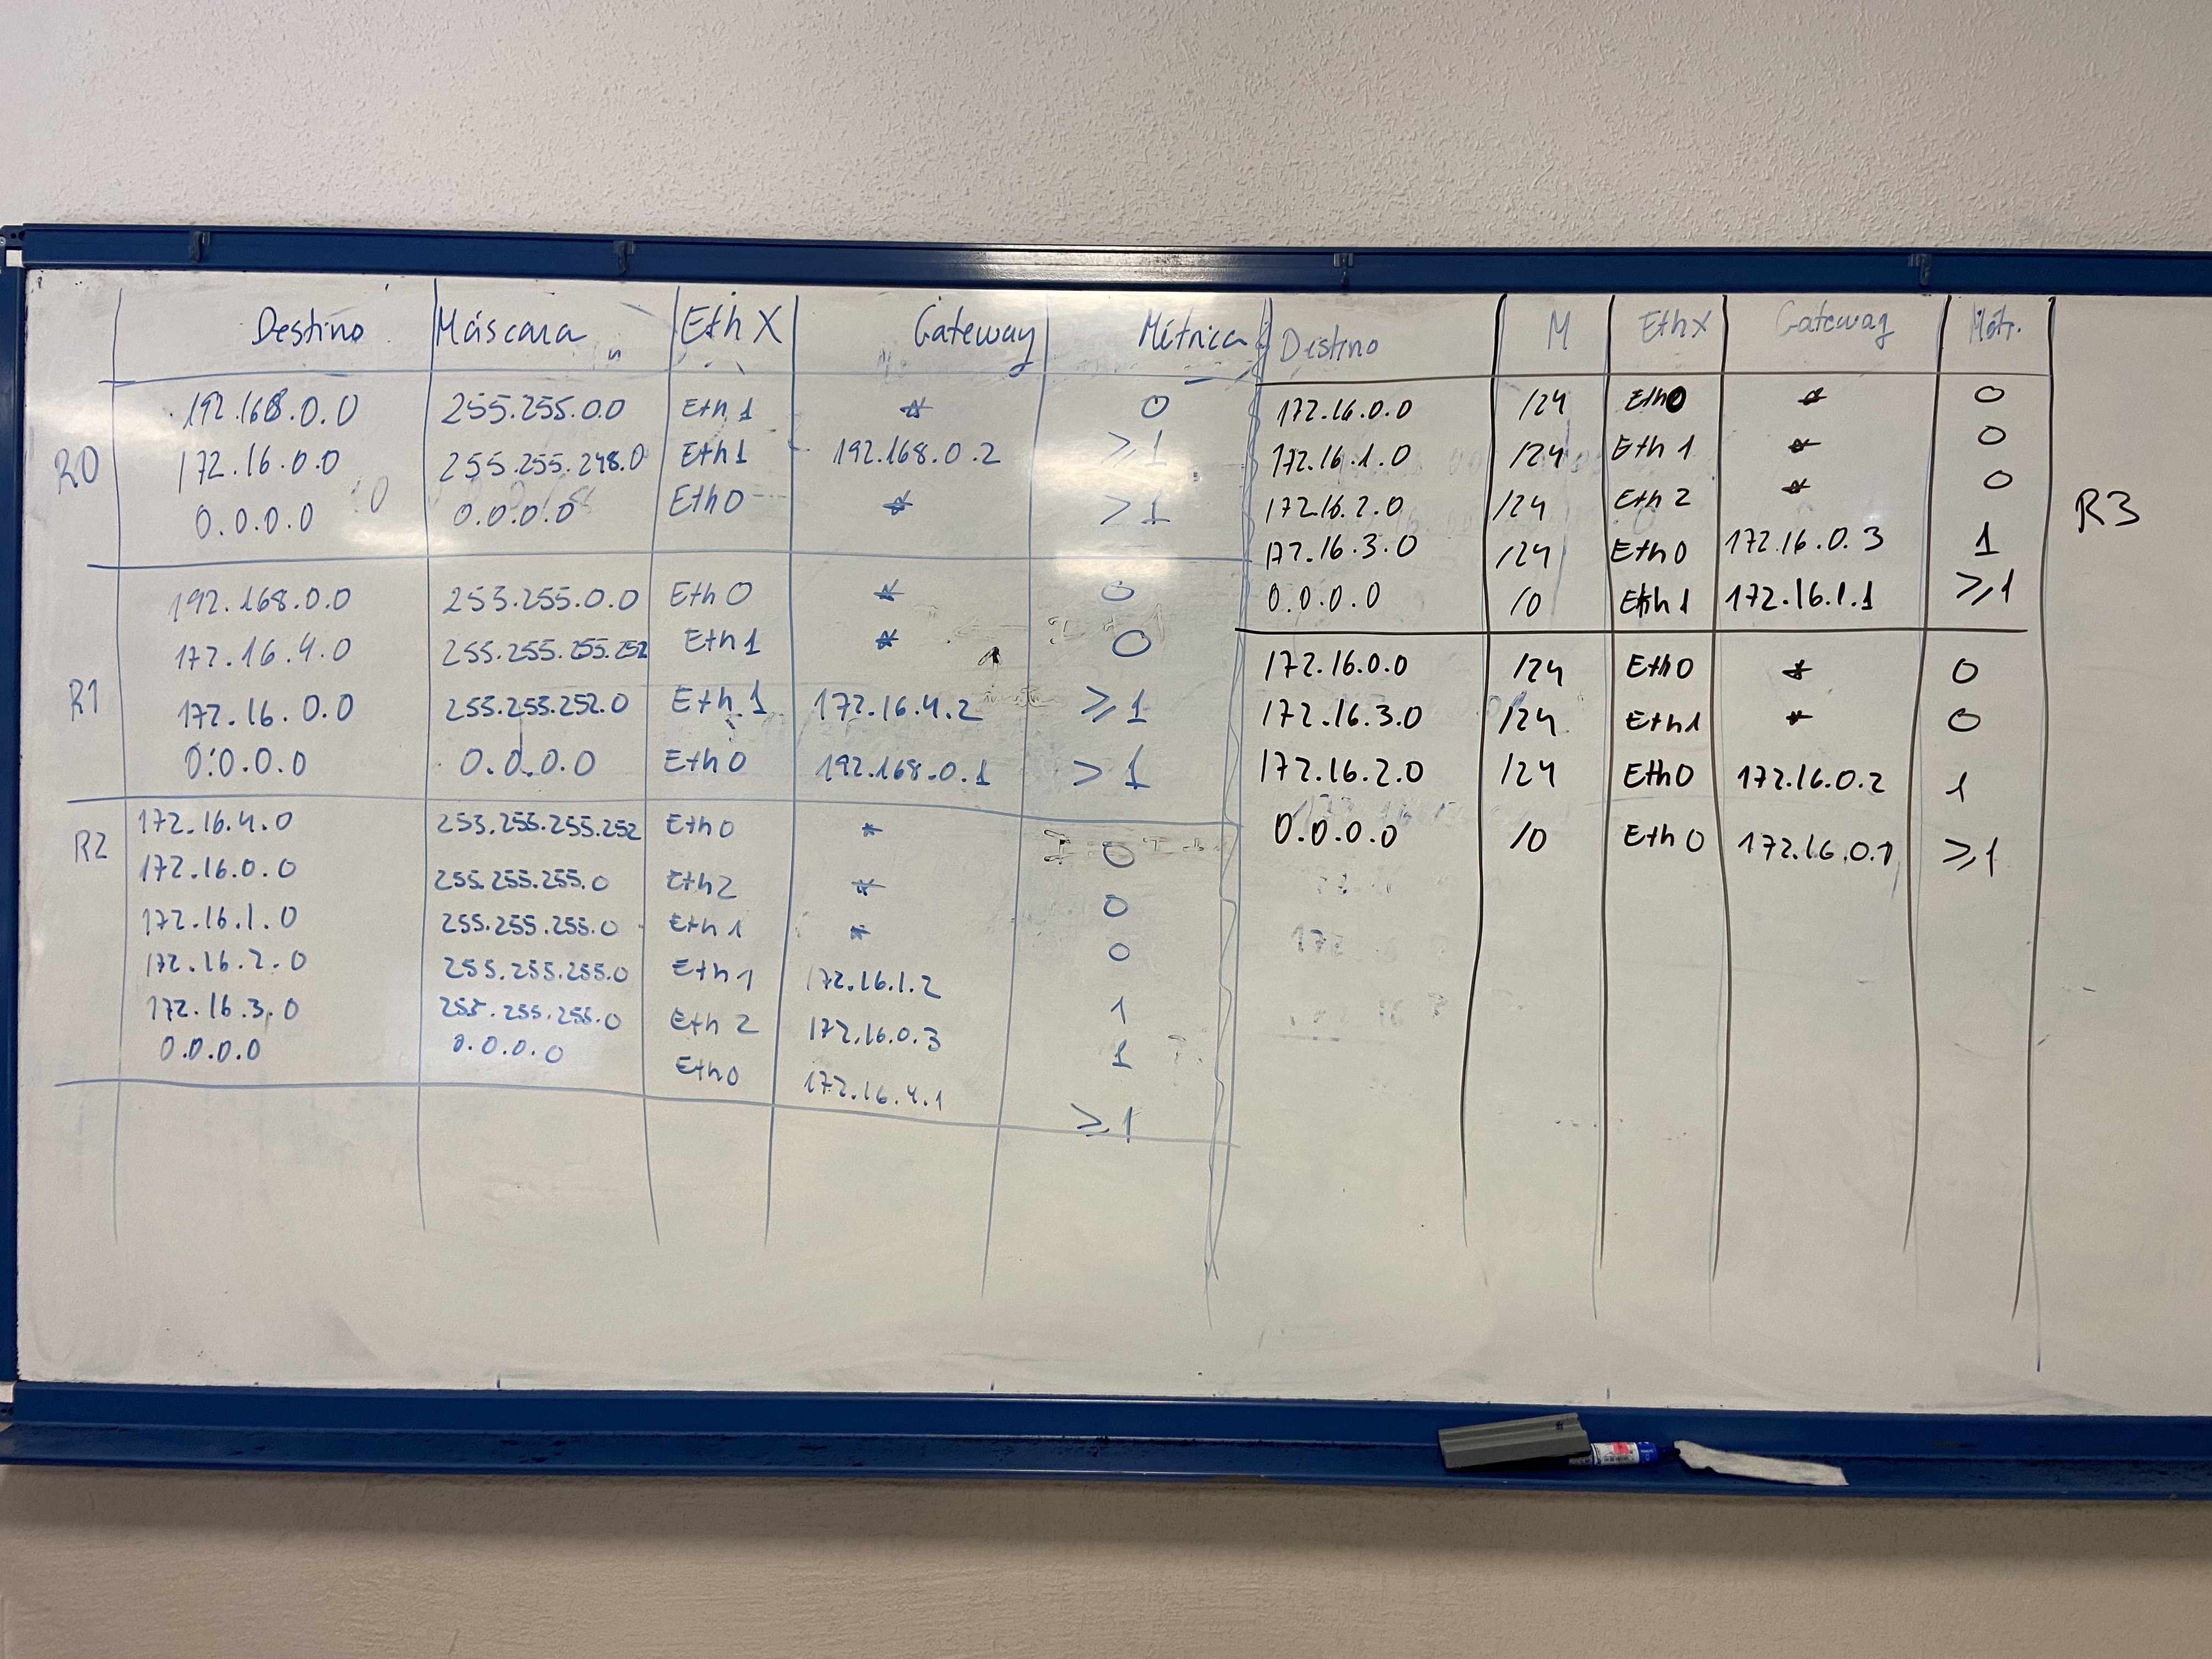 Destino Máscara EthX Gateway Métrica
R0
192.168.0.0 255.255.0.0 Eth1 * 0
172.16.0.0 255.255.248.0 Eth1 192.168.0.2 ≥1
0.0.0.0 0.0.0.0 Eth0 * >1
R1
192.168.0.0 255.255.0.0 Eth0 * 0
172.16.4.0 255.255.255.252 Eth1 * 0
172.16.0.0 255.255.252.0 Eth1 172.16.4.2 ≥1
0.0.0.0 0.0.0.0 Eth0 192.168.0.1 >1
R2
172.16.4.0 255.255.255.252 Eth0 * 0
172.16.0.0 255.255.255.0 Eth2 * 0
172.16.1.0 255.255.255.0 Eth1 * 0
172.16.2.0 255.255.255.0 Eth1 172.16.1.2 1
172.16.3.0 255.255.255.0 Eth2 172.16.0.3 1
0.0.0.0 0.0.0.0 Eth0 172.16.4.1 ≥1
Destino M EthX Gateway Métr.
172.16.0.0 /24 Eth0 * 0
172.16.1.0 /24 Eth1 * 0
172.16.2.0 /24 Eth2 * 0
172.16.3.0 /24 Eth0 172.16.0.3 1
0.0.0.0 /0 Eth1 172.16.1.1 ≥1
R3
172.16.0.0 /24 Eth0 * 0
172.16.3.0 /24 Eth1 * 0
172.16.2.0 /24 Eth0 172.16.0.2 1
0.0.0.0 /0 Eth0 172.16.0.1 ≥1